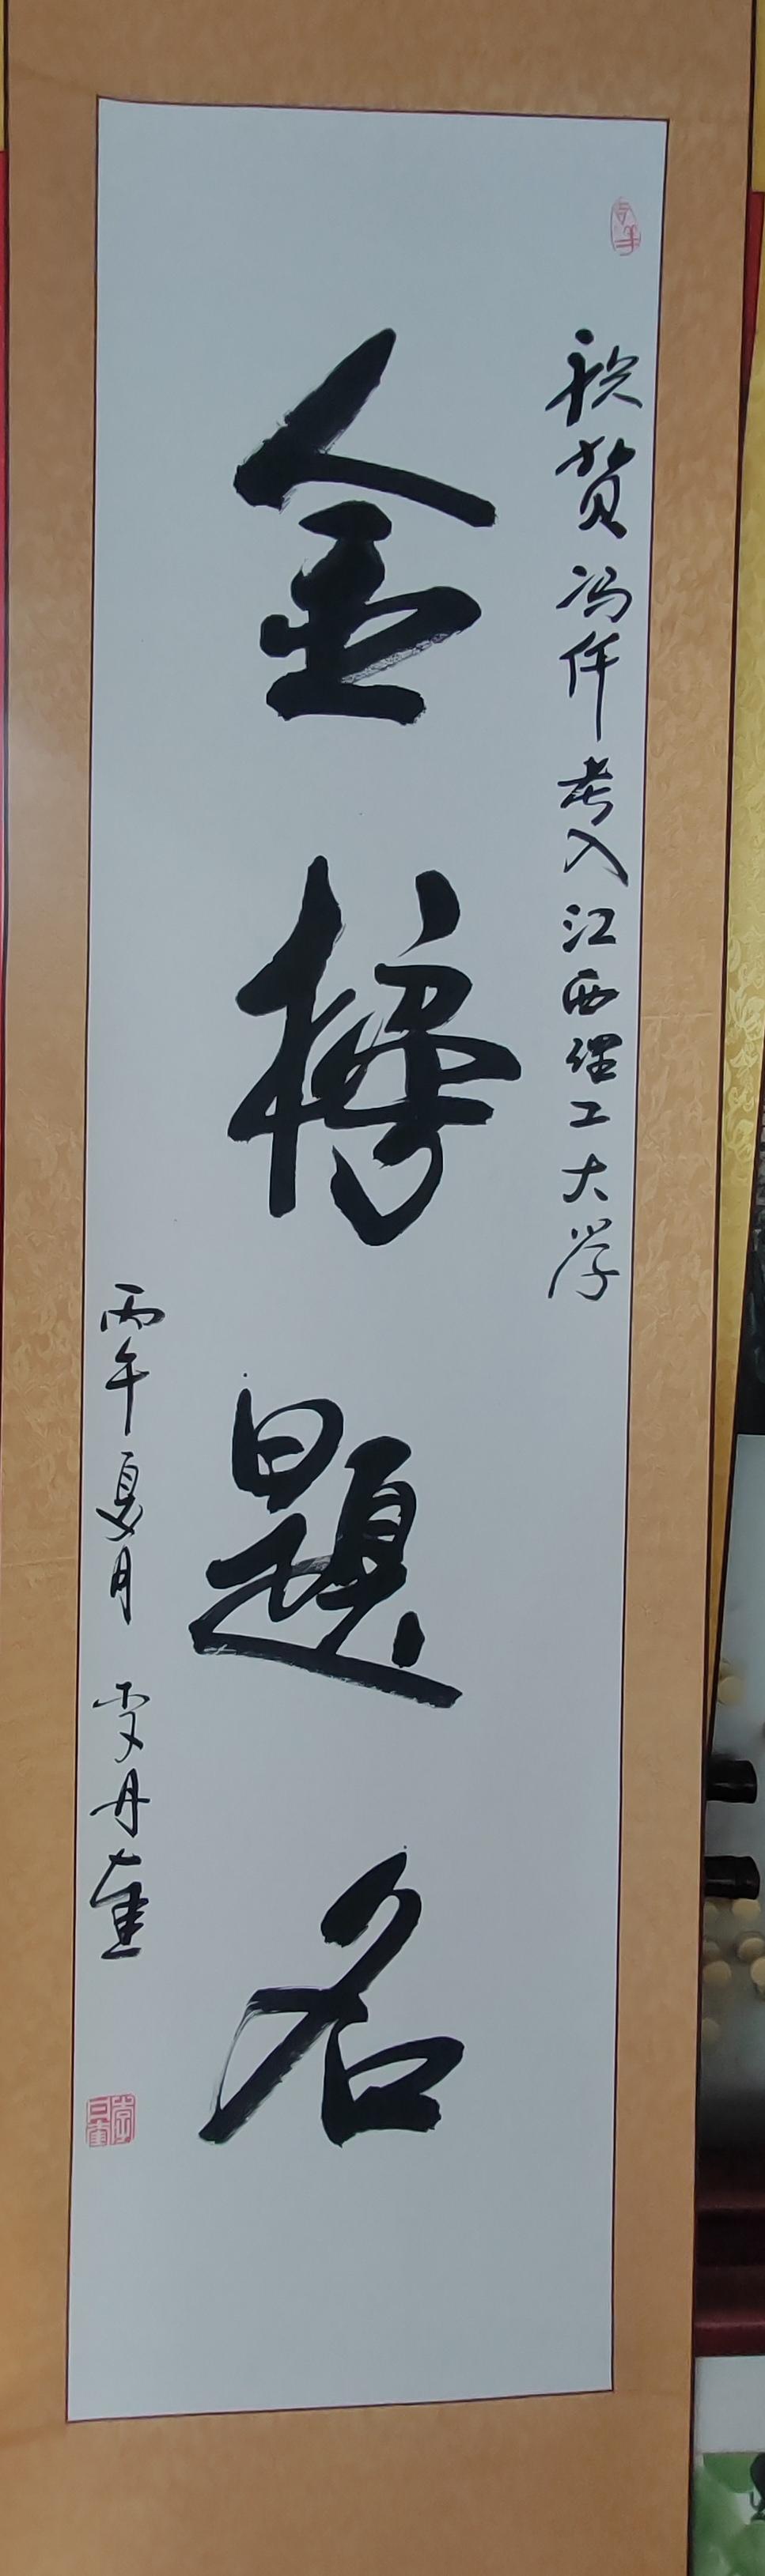 祝贺冯仟考入江西理工大学
金榜题名
丙午夏月 李丹童